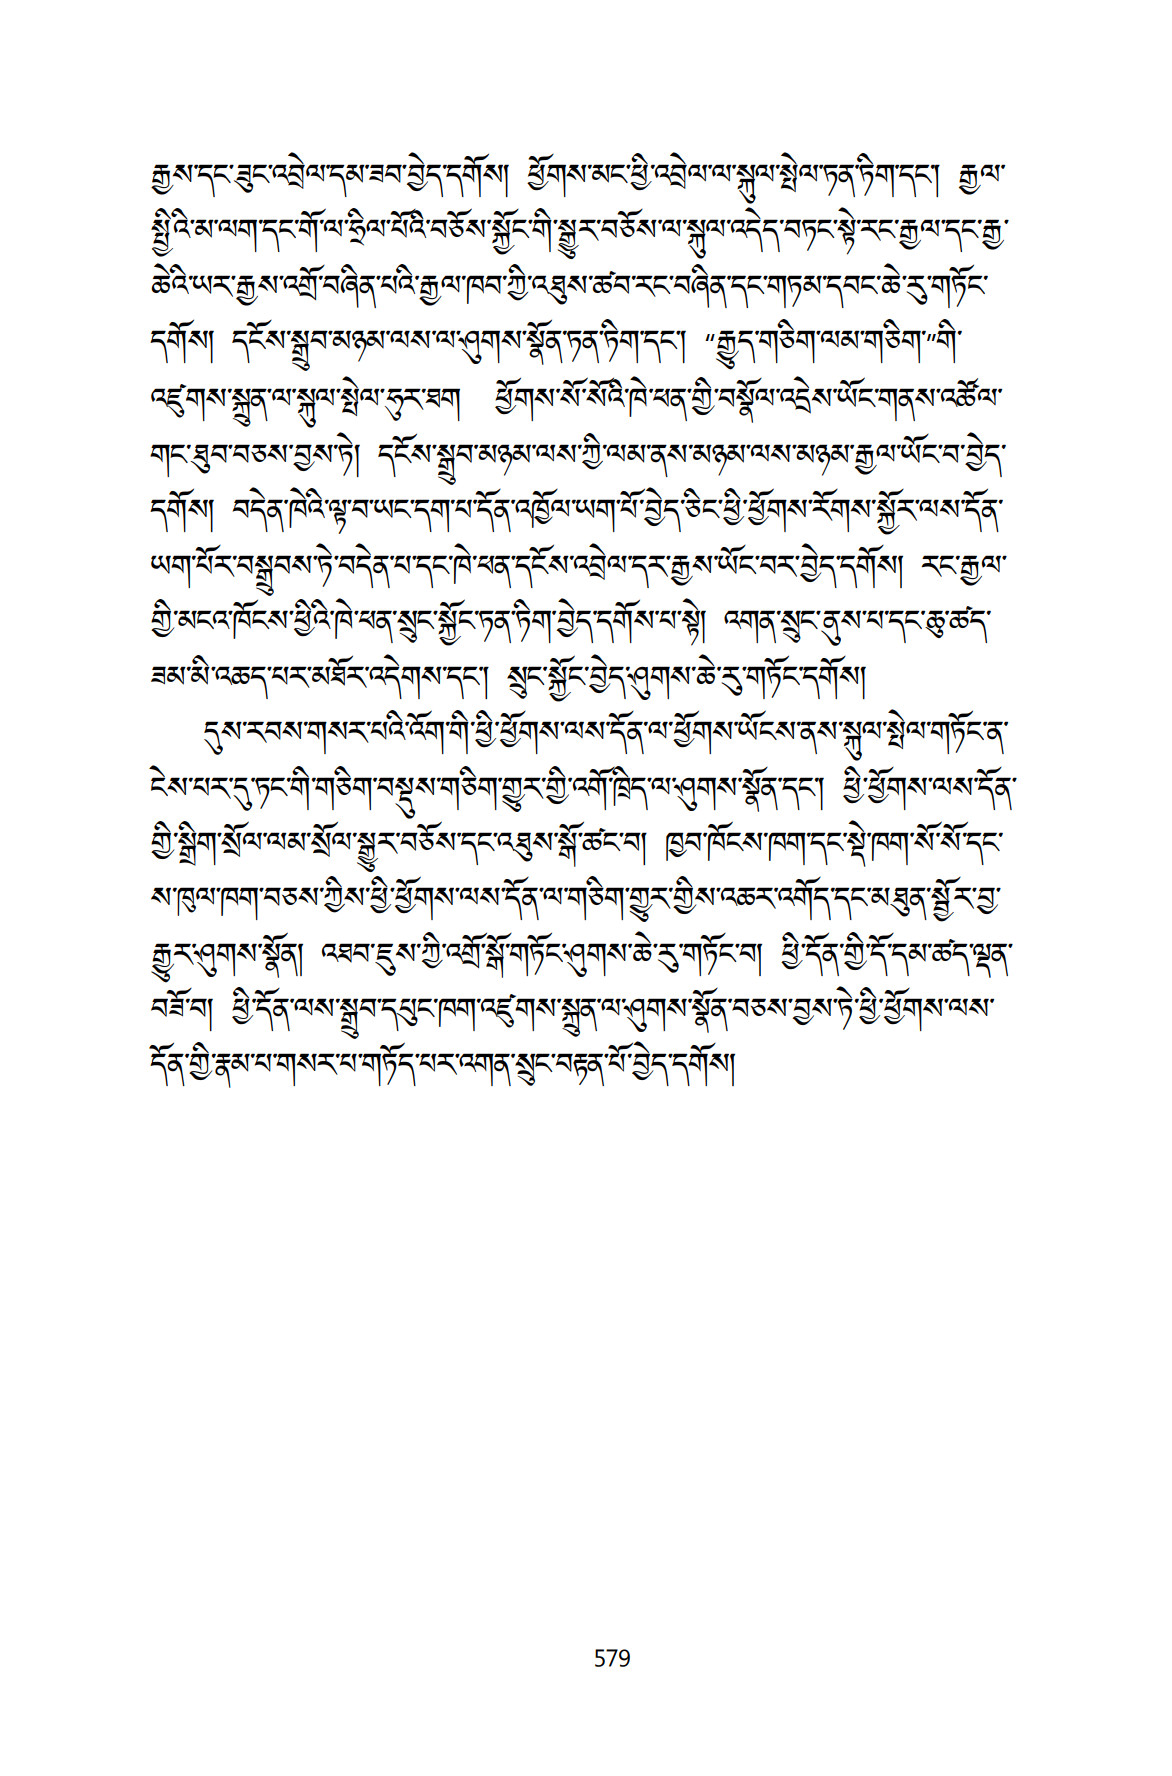 རྒྱས་དང་ཟུང་འབྲེལ་དམ་ཟབ་བྱེད་དགོས། ཕྱོགས་མང་ཕྱི་འབྲེལ་ལ་སྐུལ་སྤེལ་ཏན་ཏིག་དང་། རྒྱལ་
སྤྱིའི་མ་ལག་དང་གོ་ལ་ཧྲིལ་པོའི་བཅོས་སྐྱོང་གི་སྒྱུར་བཅོས་ལ་སྐུལ་འདེད་བཏང་སྟེ་རང་རྒྱལ་དང་རྒྱ་
ཆེའི་ཡར་རྒྱས་འགྲོ་བཞིན་པའི་རྒྱལ་ཁབ་ཀྱི་འཐུས་ཚབ་རང་བཞིན་དང་གཏམ་དབང་ཆེ་རུ་གཏོང་
དགོས། དངོས་སྒྲུབ་མཉམ་ལས་ལ་ཤུགས་སྣོན་ཏན་ཏིག་དང་། “རྒྱུད་གཅིག་ལམ་གཅིག་”གི་
འཛུགས་སྐྲུན་ལ་སྐུལ་སྤེལ་ཧུར་ཐག ཕྱོགས་སོ་སོའི་ཁེ་ཕན་གྱི་བསྣོལ་འདྲེས་ཡོང་གནས་འཚོལ་
གང་ཐུབ་བཅས་བྱས་ཏེ། དངོས་སྒྲུབ་མཉམ་ལས་ཀྱི་ལམ་ནས་མཉམ་ལས་མཉམ་རྒྱལ་ཡོང་བ་བྱེད་
དགོས། བདེན་ཁེའི་ལྟ་བ་ཡང་དག་པ་དོན་འཁྱོལ་ཡག་པོ་བྱེད་ཅིང་ཕྱི་ཕྱོགས་རོགས་སྐྱོར་ལས་དོན་
ཡག་པོར་བསྒྲུབས་ཏེ་བདེན་པ་དང་ཁེ་ཕན་དངོས་འབྲེལ་དར་རྒྱས་ཡོང་བར་བྱེད་དགོས། རང་རྒྱལ་
གྱི་མངའ་ཁོངས་ཕྱིའི་ཁེ་ཕན་སྲུང་སྐྱོང་ཏན་ཏིག་བྱེད་དགོས་པ་སྟེ། འགན་སྲུང་ནུས་པ་དང་ཆུ་ཚད་
ཟམ་མི་འཆད་པར་མཐོར་འདེགས་དང་། སྲུང་སྐྱོང་བྱེད་ཤུགས་ཆེ་རུ་གཏོང་དགོས།
དུས་རབས་གསར་པའི་འོག་གི་ཕྱི་ཕྱོགས་ལས་དོན་ལ་ཕྱོགས་ཡོངས་ནས་སྐུལ་སྤེལ་གཏོང་ན་
ངེས་པར་དུ་ཏང་གི་གཅིག་བསྡུས་གཅིག་གྱུར་གྱི་འགོ་ཁྲིད་ལ་ཤུགས་སྣོན་དང་། ཕྱི་ཕྱོགས་ལས་དོན་
གྱི་སྒྲིག་སྲོལ་ལམ་སྲོལ་སྒྱུར་བཅོས་དང་འཐུས་སྒོ་ཚང་བ། ཁྱབ་ཁོངས་ཁག་དང་སྡེ་ཁག་སོ་སོ་དང་
ས་ཁུལ་ཁག་བཅས་ཀྱིས་ཕྱི་ཕྱོགས་ལས་དོན་ལ་གཅིག་གྱུར་གྱིས་འཆར་འགོད་དང་མཐུན་སྦྱོར་བྱ་
རྒྱུར་ཤུགས་སྣོན། འཐབ་ཇུས་ཀྱི་འགྲོ་སྒོ་གཏོང་ཤུགས་ཆེ་རུ་གཏོང་བ། ཕྱི་དོན་གྱི་དོ་དམ་ཚད་ལྡན་
བཟོ་བ། ཕྱི་དོན་ལས་སྒྲུབ་དཔུང་ཁག་འཛུགས་སྐྲུན་ལ་ཤུགས་སྣོན་བཅས་བྱས་ཏེ་ཕྱི་ཕྱོགས་ལས་
དོན་གྱི་རྣམ་པ་གསར་པ་གཏོད་པར་འགན་སྲུང་བརྟན་པོ་བྱེད་དགོས།
579